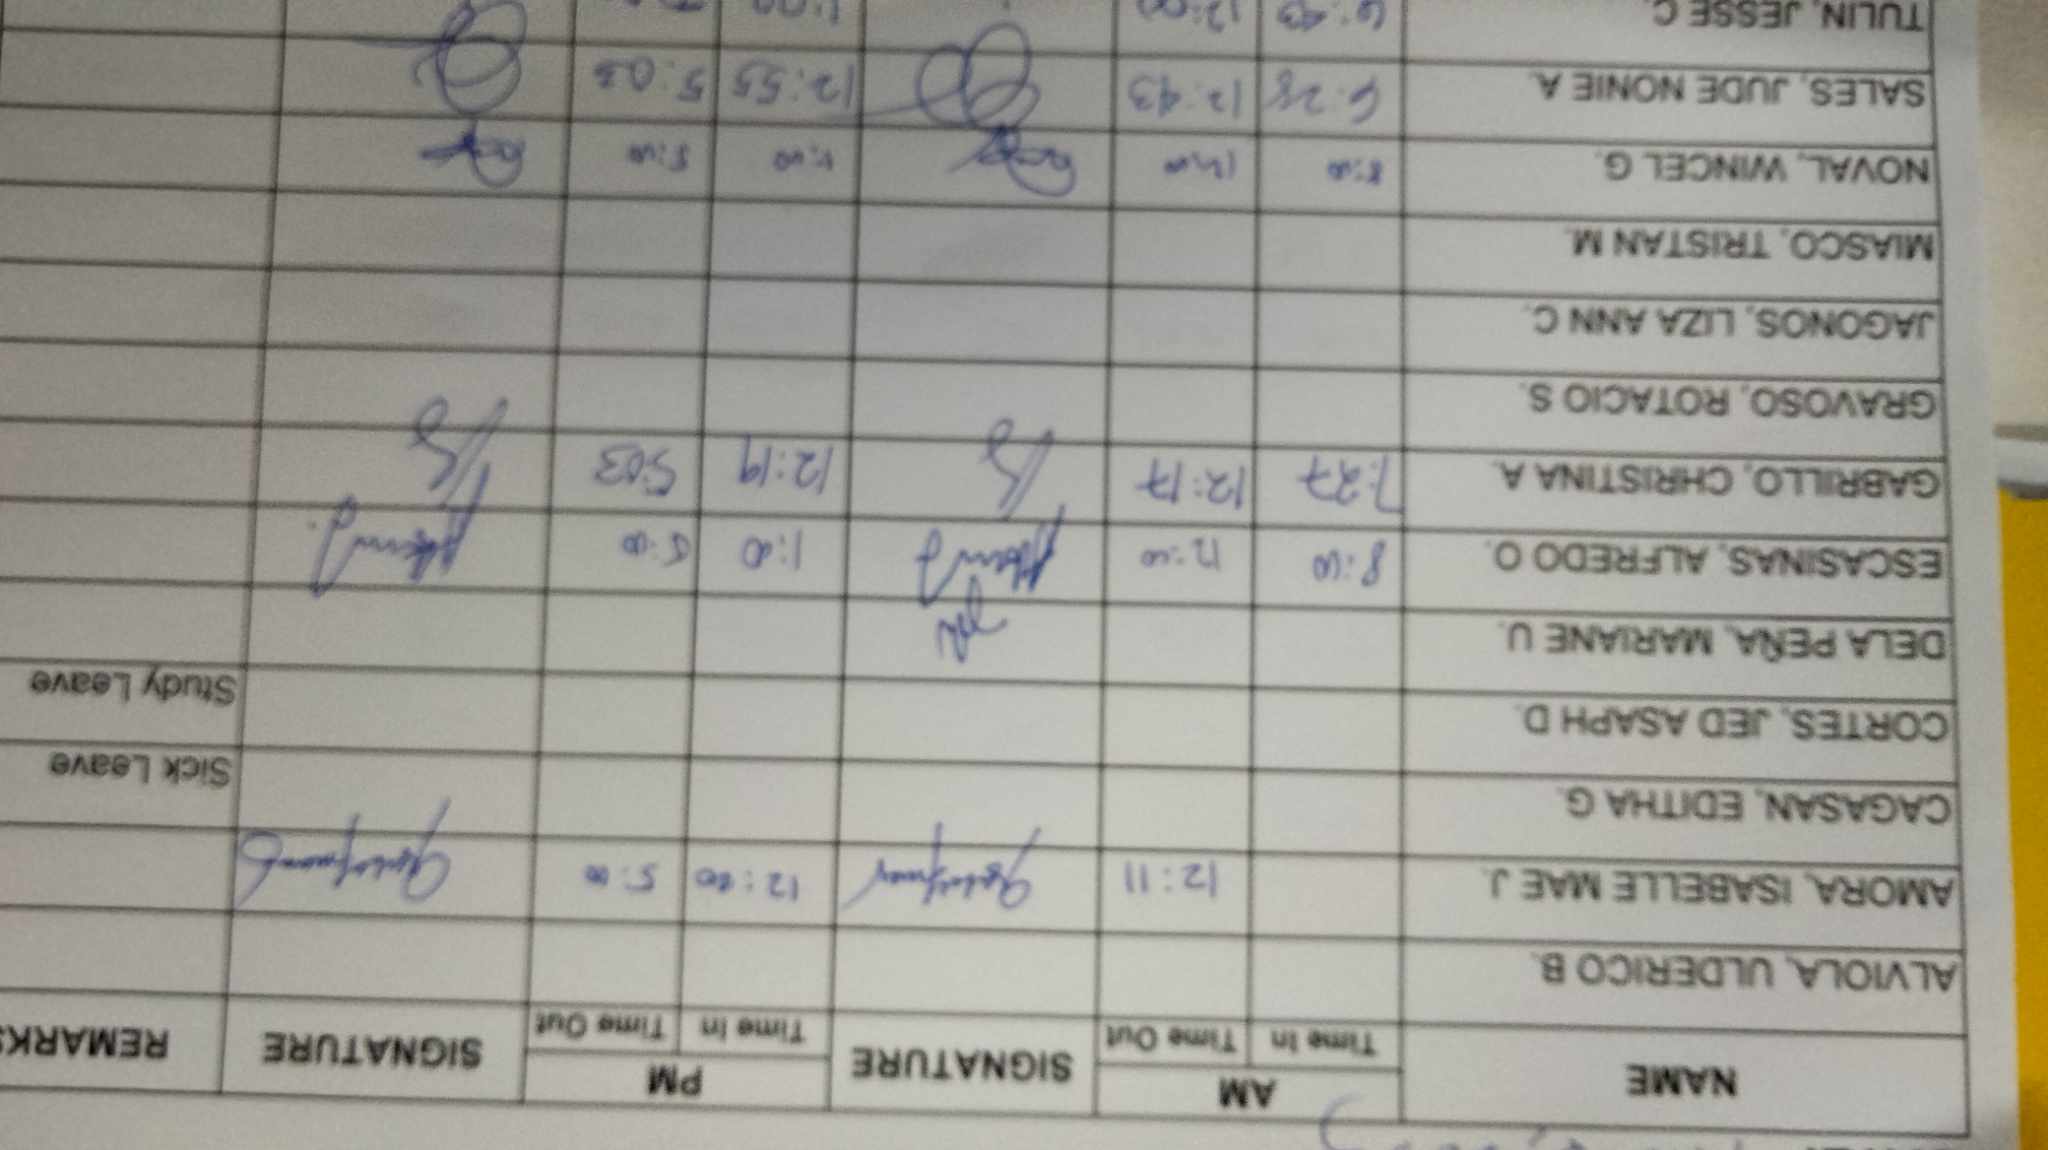 NAME AM SIGNATURE PM SIGNATURE REMARKS
Time In Time Out Time In Time Out
ALVIOLA, ULDERICO B.
AMORA, ISABELLE MAE J. 12:11 12:00 5:00
CAGASAN, EDITHA G. Sick Leave
CORTES, JED ASAPH D. Study Leave
DELA PEÑA, MARIANE U.
ESCASINAS, ALFREDO O. 8:00 12:00 1:00 5:00
GABRILLO, CHRISTINA A. 7:27 12:17 12:19 5:03
GRAVOSO, ROTACIO S.
JAGONOS, LIZA ANN C.
MIASCO, TRISTAN M.
NOVAL, WINCEL G. 8:00 12:00 5:00
SALES, JUDE NONIE A. 6:28 12:43 12:55 5:03
TULIN, JESSE C. 6:43 12:00 1:00